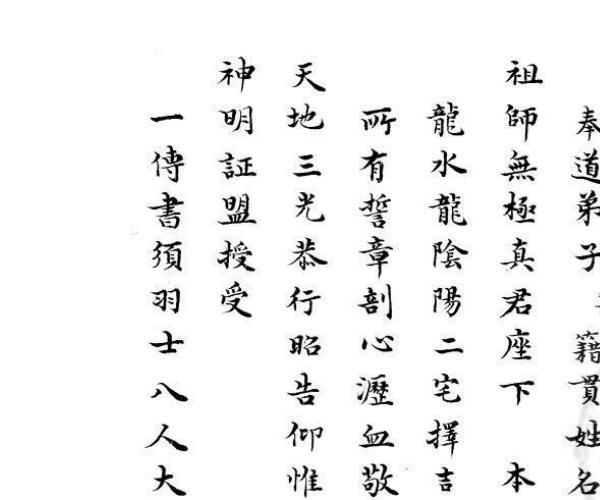 奉道弟子 籍貫姓名
祖師無極真君座下 本
龍水龍陰陽二宅擇吉
所有誓章剖心瀝血敬
天地三光恭行昭告仰惟
神明証盟授受
一傳書須羽士八人大